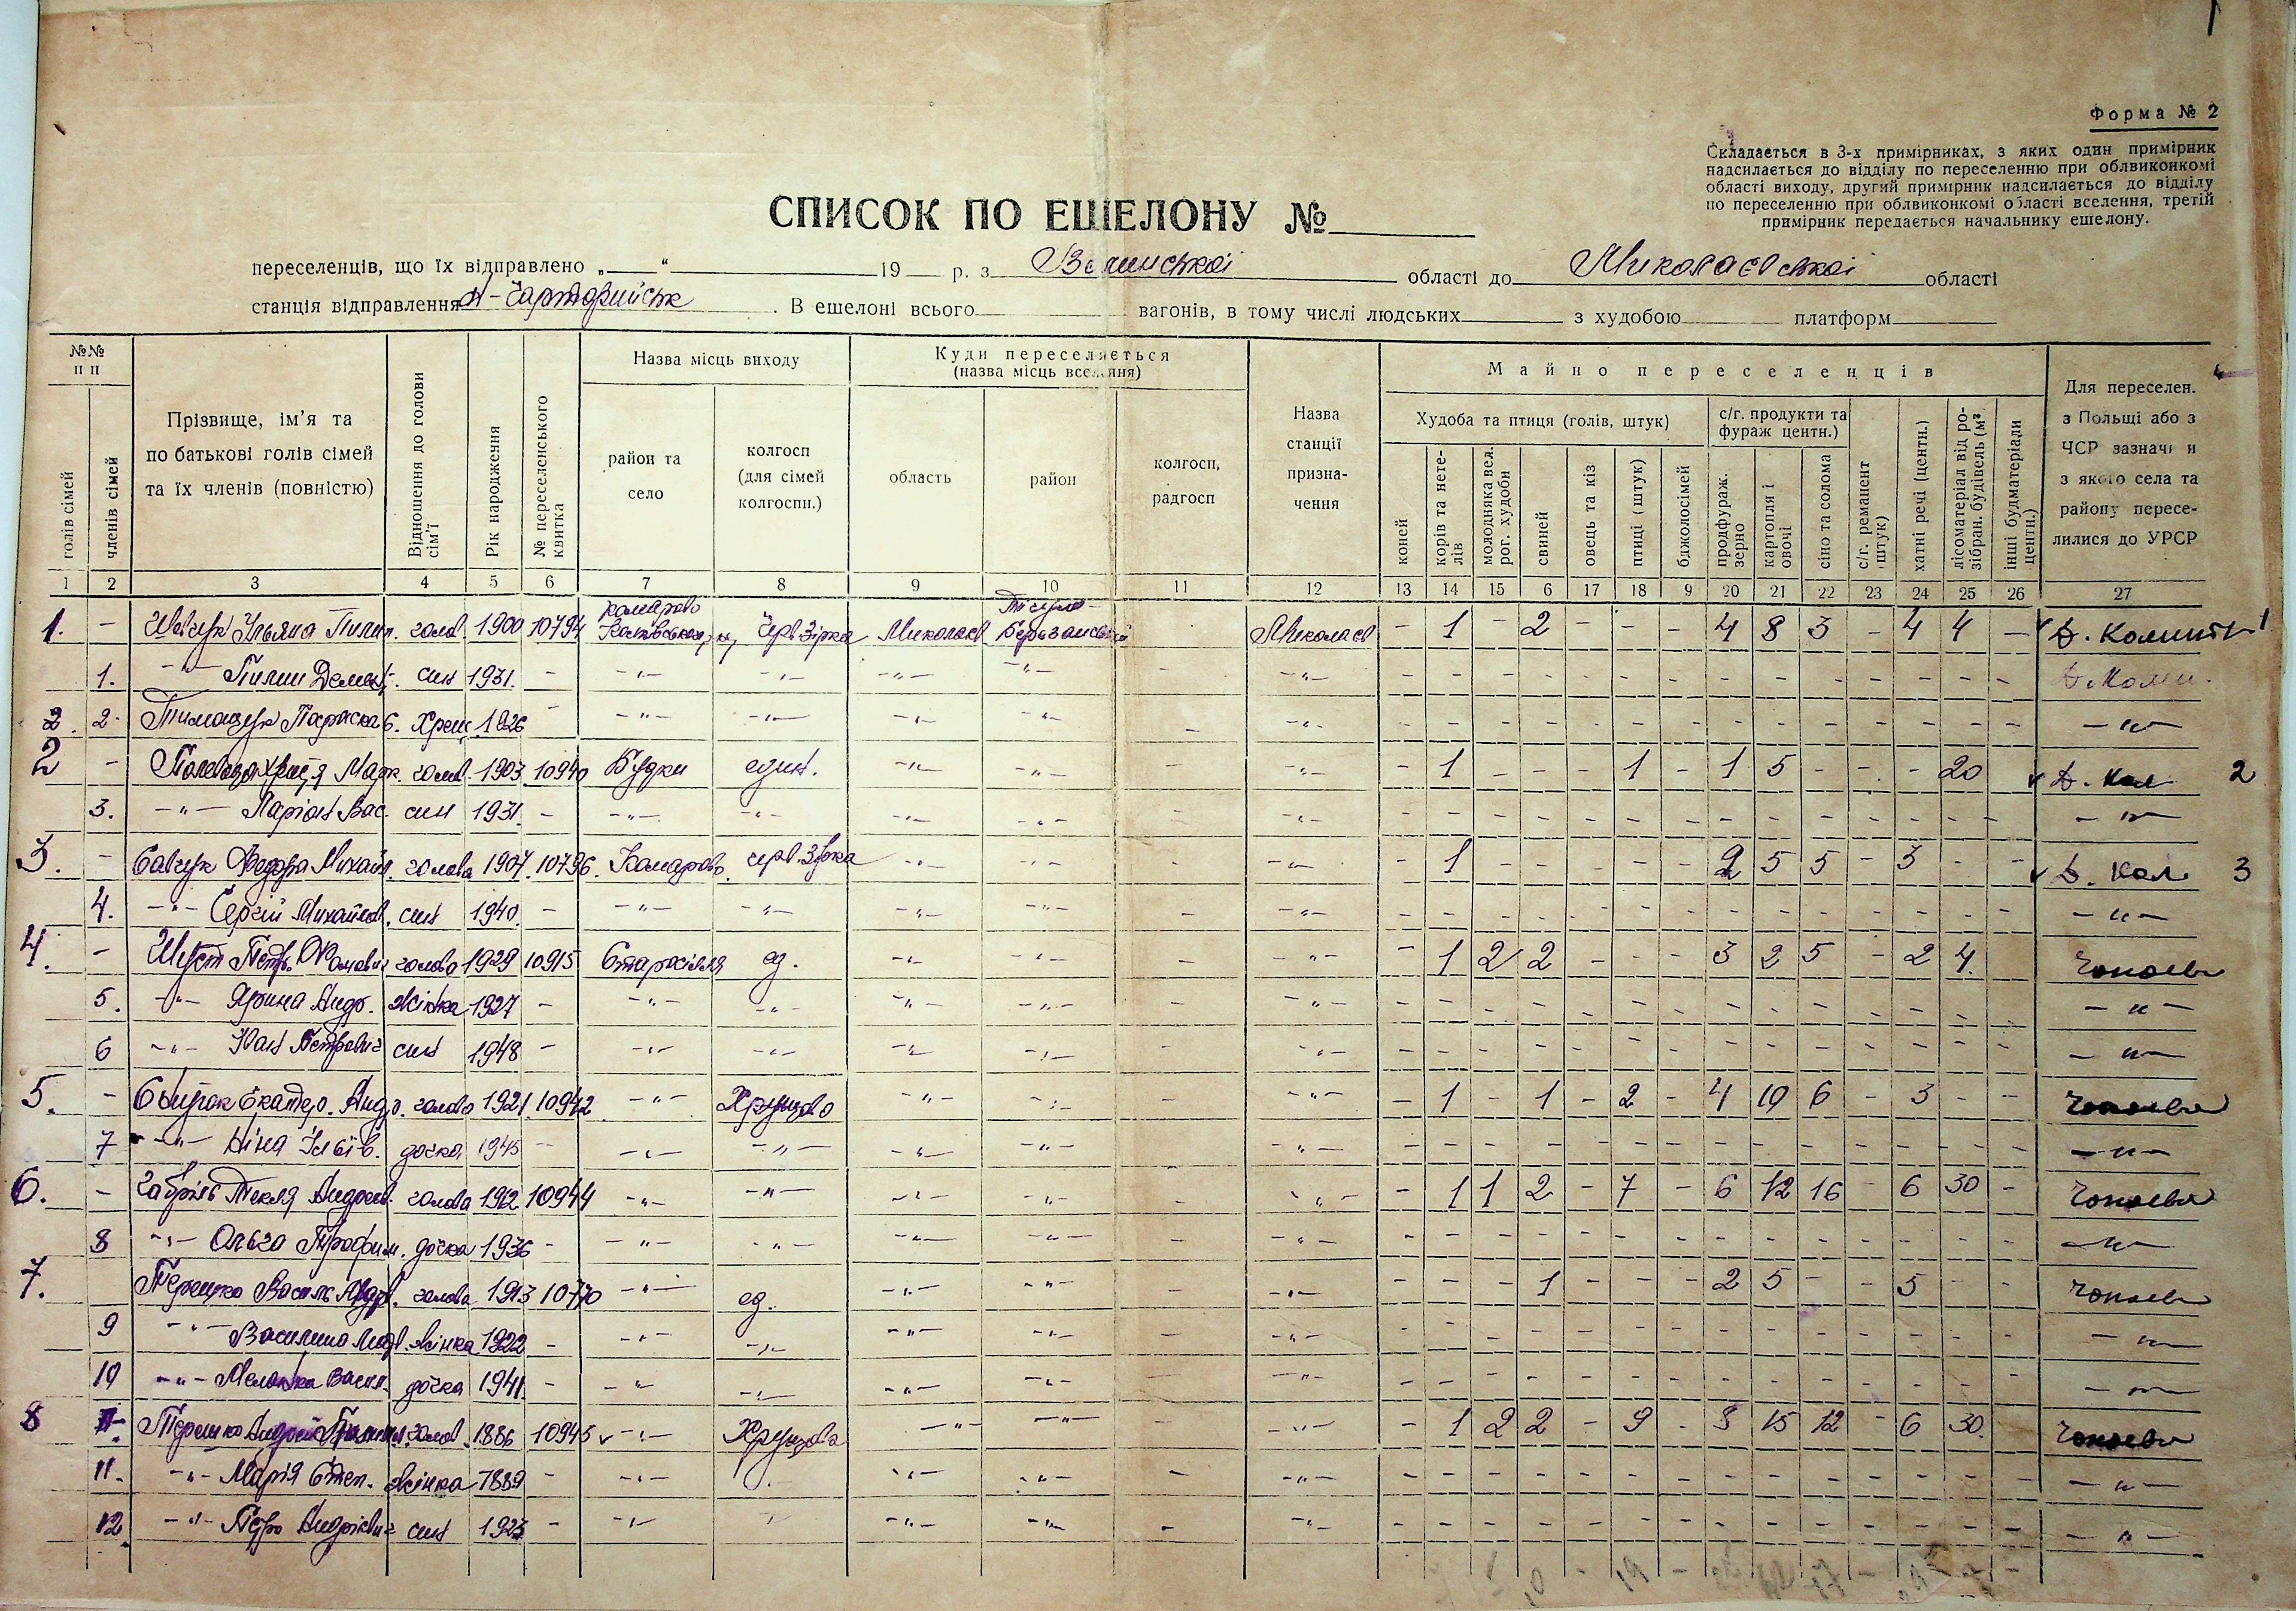 Форма № 2
Складається в 3-х примірниках, з яких один примірник
надсилається до відділу по переселенню при облвиконкомі
області виходу, другий примірник надсилається до відділу
по переселенню при облвиконкомі області вселення, третій
примірник передається начальнику ешелону.
СПИСОК ПО ЕШЕЛОНУ №
переселенців, що їх відправлено „ “ 19 р. з Волинської області до Миколаєвської області
станція відправлення Чарторийськ. В ешелоні всього вагонів, в тому числі людських з худобою платформ
№№ п п
Назва місць виходу
Куди переселяється (назва місць вселення)
Майно переселенців
голів сімей
членів сімей
Прізвище, ім’я та по батькові голів сімей та їх членів (повністю)
Відношення до голови сім’ї
Рік народження
№ переселенського квитка
район та село
колгосп (для сімей колгоспн.)
область
район
колгосп, радгосп
Назва станції призначення
Худоба та птиця (голів, штук)
с/г. продукти та фураж центн.)
коней
корів та нетелів
молодняка вел. рог. худоби
свиней
овець та кіз
птиці (штук)
бджолосімей
продфураж. зерно
картопля і овочі
сіно та солома
с/г. реманент штук)
хатні речі (центн.)
лісоматеріал від розібран. будівель (м³.
інші будматеріали центн.)
Для переселен. з Польщі або з ЧСР зазначи и з якого села та району переселилися до УРСР
1 2 3 4 5 6 7 8 9 10 11 12 13 14 15 6 17 18 9 20 21 22 23 24 25 26 27
1. – Уляна Пилип. голов. 1900 10794 Комарово Черв Зірка Миколаєв Березанський Миколаєв – 1 – 2 – – – 4 8 3 – 4 4 – 1
1. –"– Пилип син 1931. – –"– –"– –"– –"– –"–
2. 2. Тимощук Параска 1926 – –"– –"– –"– –"– –"– –"–
2 – Марк. голов. 1903 10940 Будки един. –"– –"– –"– – 1 – – – 1 – 1 5 – – – 20 2
3. –"– Ларіон Вас. син 1931. – –"– –"– –"– –"– –"– –"–
3. – Савчук Федора Михайл. голова 1907 10796. Комарово черв. Зірка –"– –"– –"– – 1 – – – – – 2 5 5 – 3 – – 3
4. –"– Сергій Михайлов. син 1940. – –"– –"– –"– –"– –"– –"–
4. – Шуст Петр. голова 1929 10915 Старосілля ед. –"– –"– –"– – 1 2 2 – – – 3 2 5 – 2 4.
5. –"– Ярина Андр. жінка 1927 – –"– –"– –"– –"– –"– –"–
6 –"– Іван Петрович син 1948 – –"– –"– –"– –"– –"– –"–
5. – Екатер. Андр. голова 1921 10942 –"– Хрущова –"– –"– –"– – 1 – 1 – 2 – 4 10 6 – 3 – –
7 –"– Ніна Ільїв. дочка 1945 – –"– –"– –"– –"– –"– –"–
6. – Текля Андреев. голова 10944 –"– –"– –"– –"– –"– – 1 1 2 – 7 – 6 12 16 – 6 30 –
8 –"– Ольга Трофим. дочка 1936 – –"– –"– –"– –"– –"– –"–
7. Терешко Василь Андр. голова 1913 10770 –"– ед. –"– –"– –"– – – – 1 – – – 2 5 – – 5 – –
9 –"– Василина жінка 1922 – –"– –"– –"– –"– –"– –"–
10 –"– Меланка Васил. дочка 1941. – –"– –"– –"– –"– –"– –"–
8 Терешко Андрей голов. 1886 10945 –"– Хрущова –"– –"– –"– – 1 2 2 – 9 – 15 12 – 6 30.
11. –"– Марія Степ. жінка 1889 – –"– –"– –"– –"– –"–
12. –"– Петро Андрієвич син 1923 – –"– –"– –"– –"– –"–